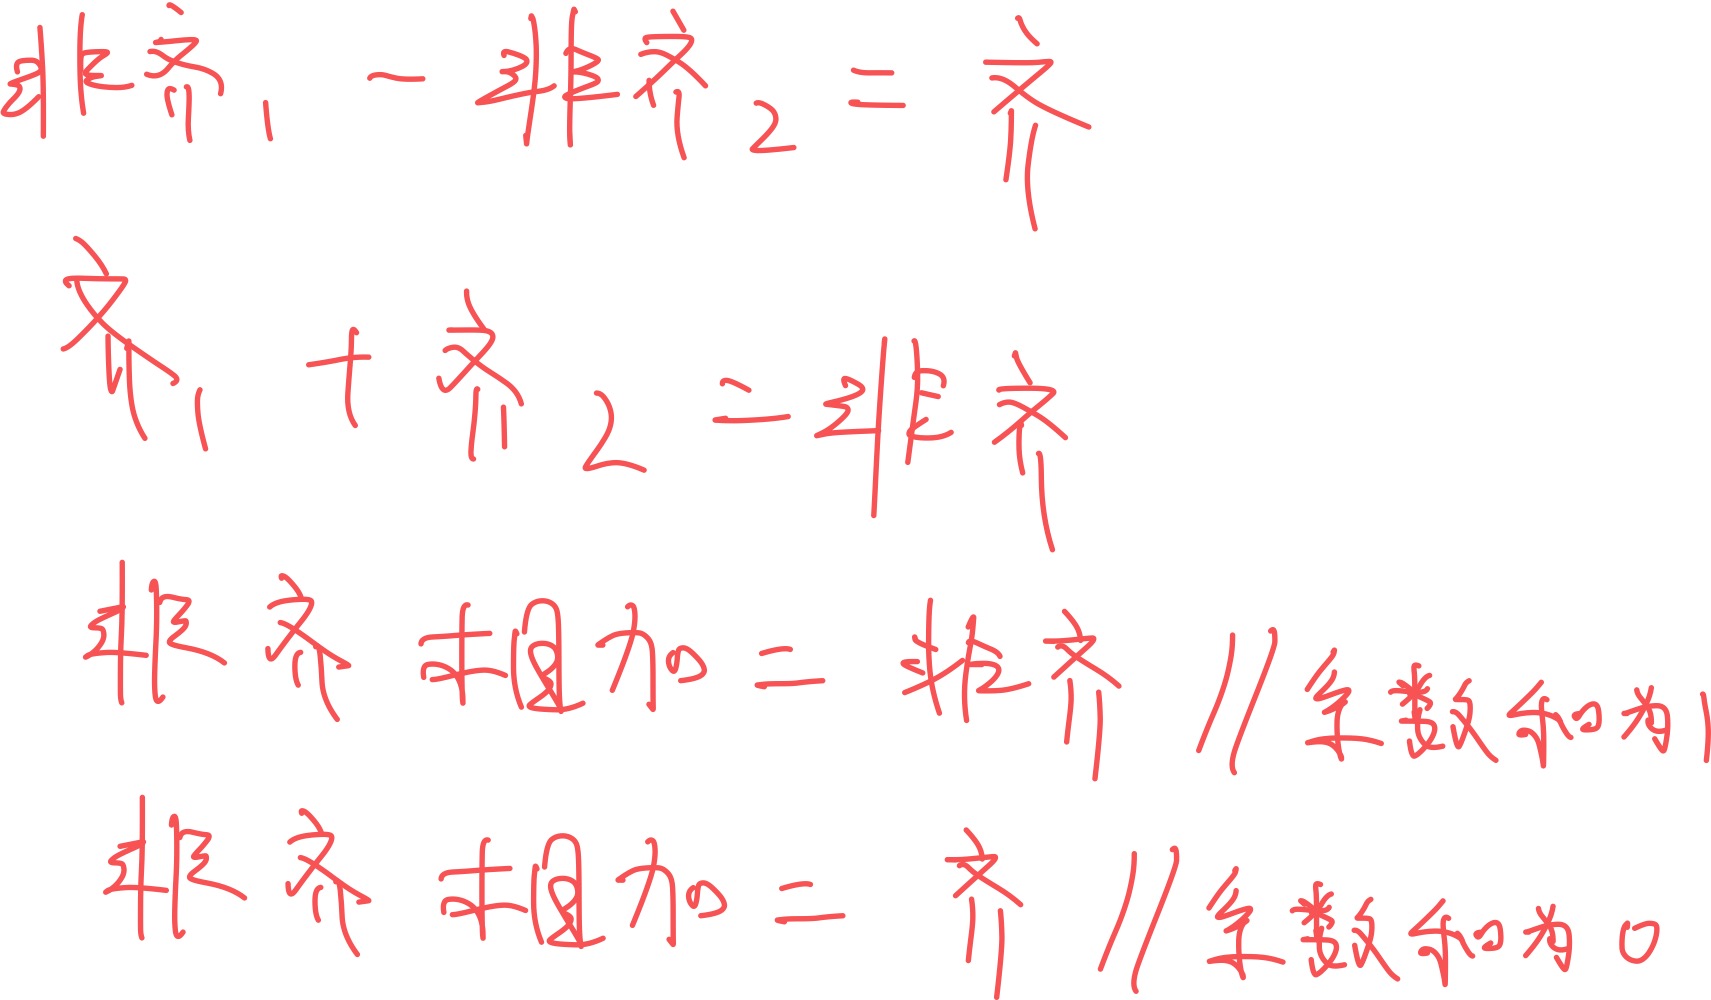 非齐1 - 非齐2 = 齐
齐1 + 齐2 = 非齐
非齐相加 = 非齐 // 系数和为1
非齐相加 = 齐 // 系数和为0